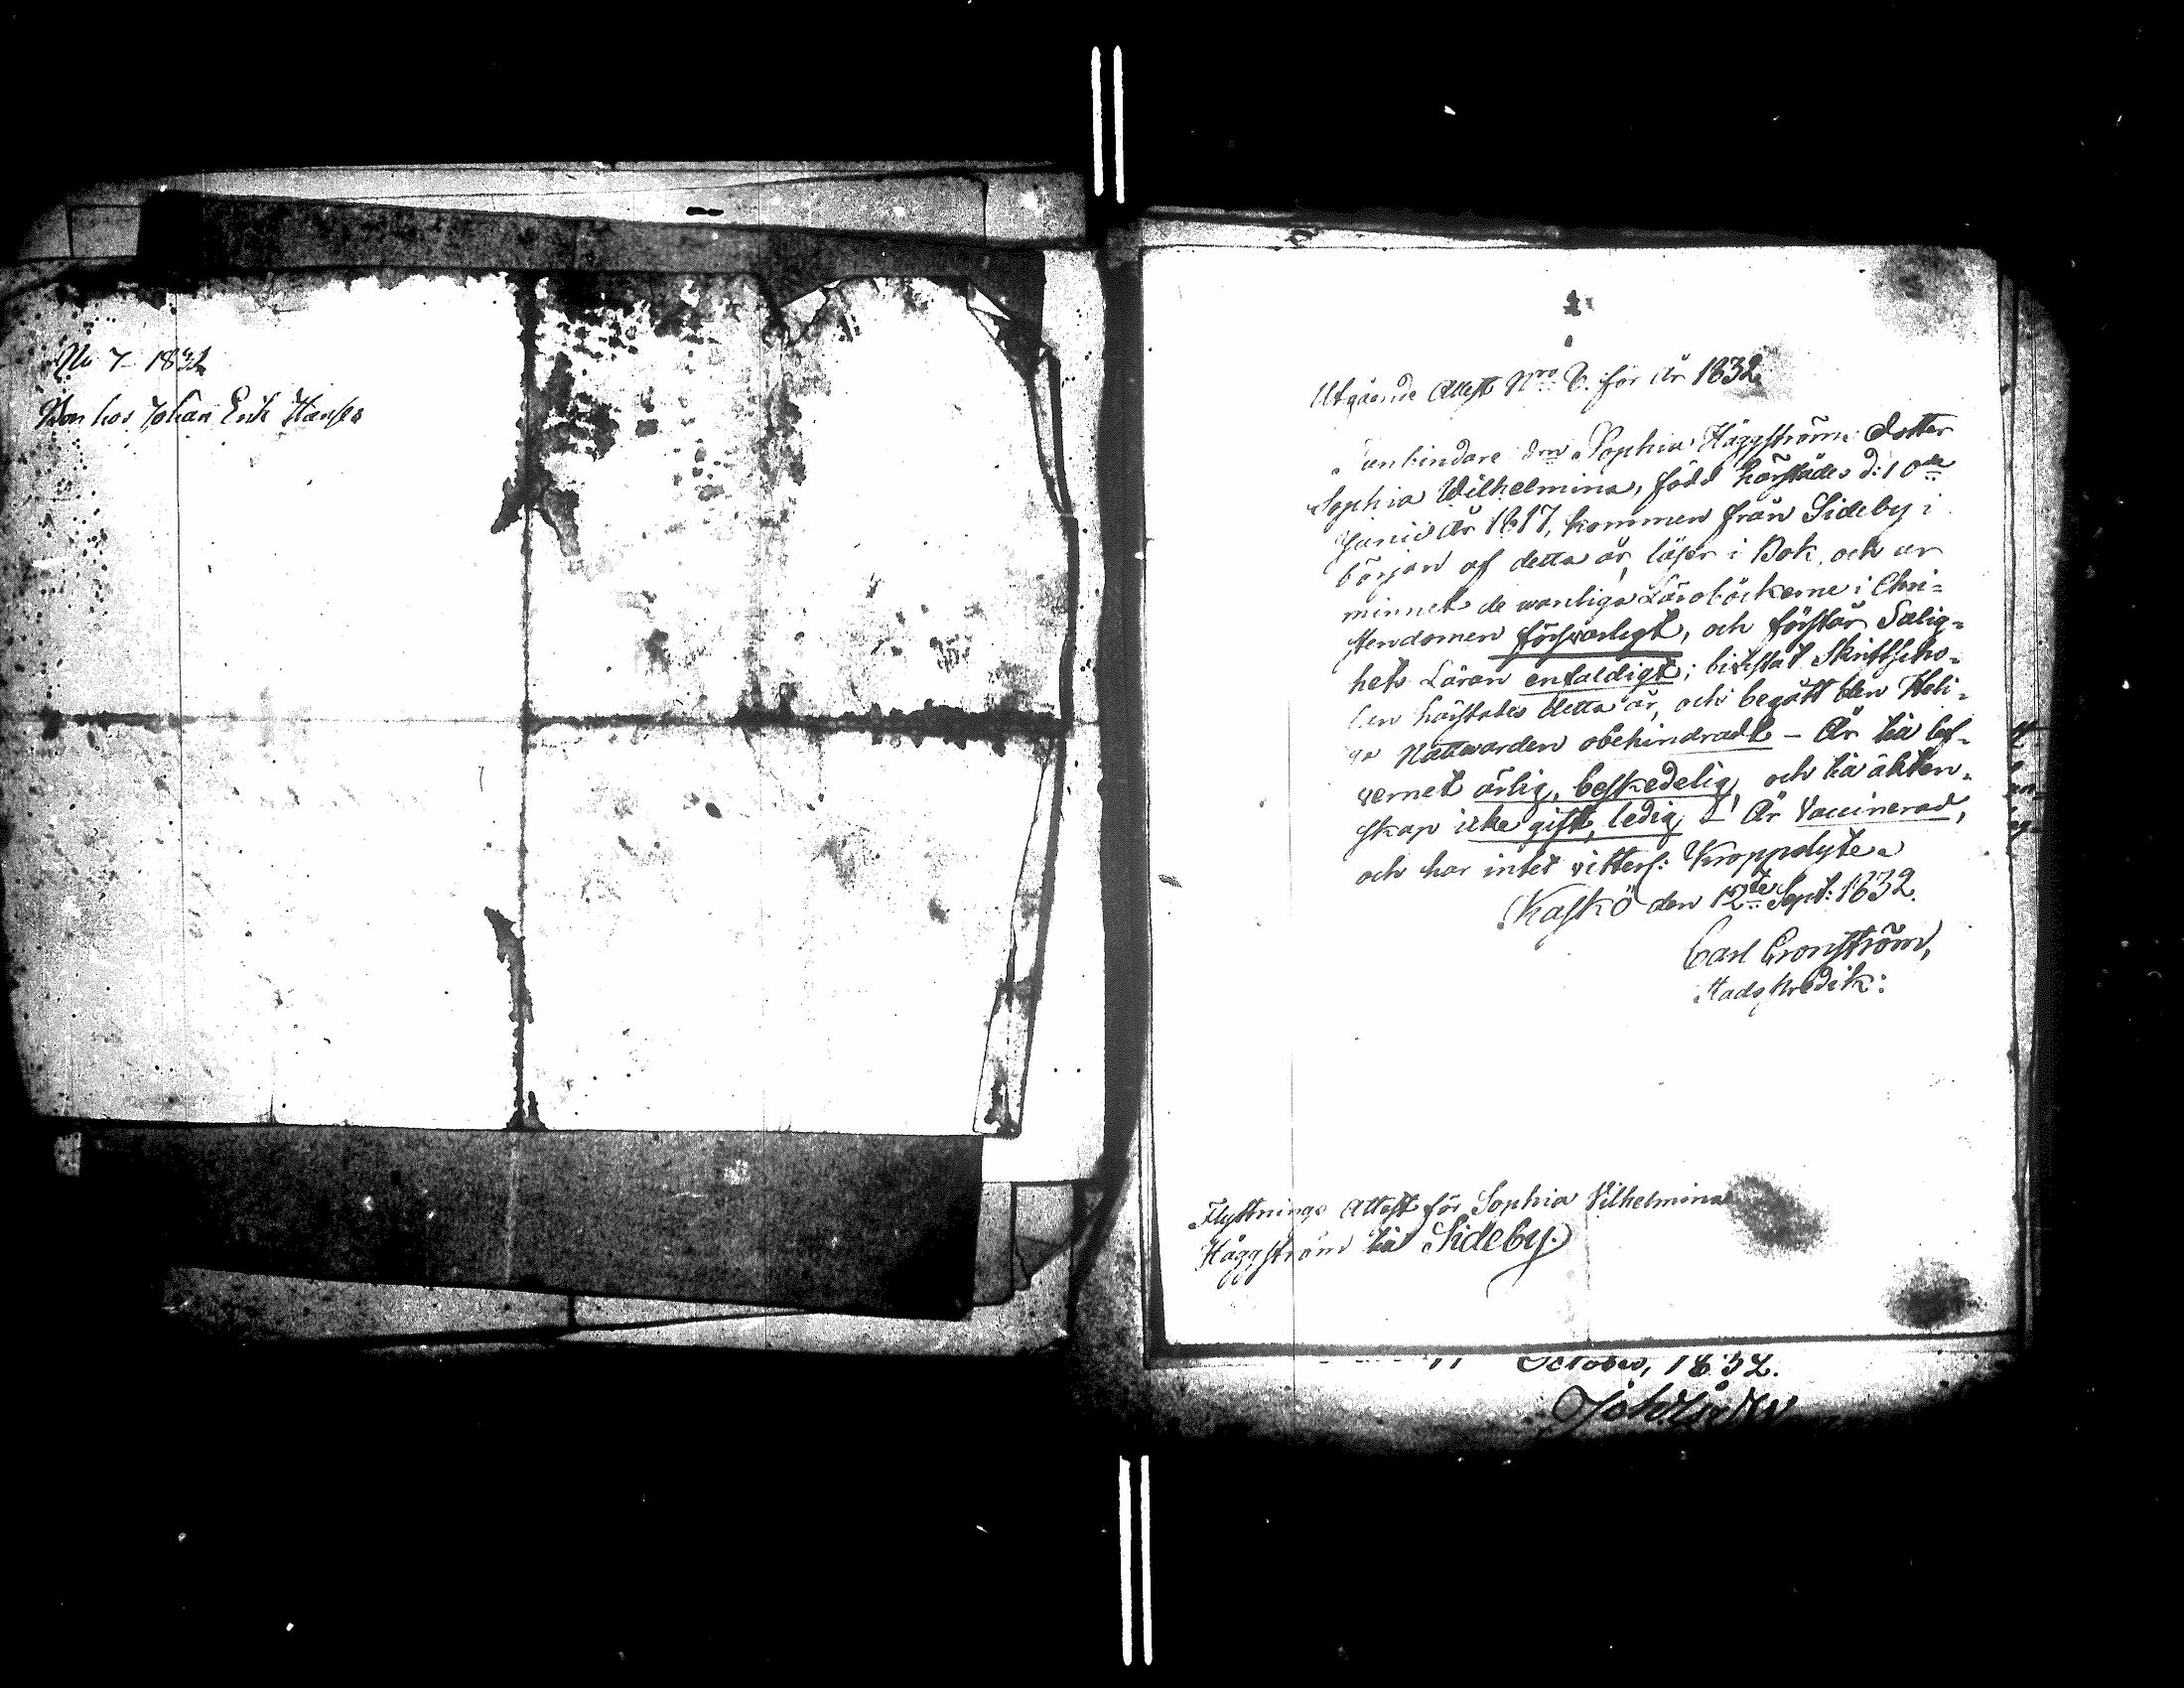 No 7 1832
Bor hos Johan Erik Hanses
Utgående Attest Nro 6. för År 1832.
Sophia Häggströms dotter
Sophia Wilhelmina, född härstädes d: 10de
Junii År 1817, kommen från Sideby i
början af detta år, läser i Bok och ur
minnet de wanliga Läroböckerne i Chri-
stendomen försvarligt, och förstår Salig-
hets Läran enfaldigt; bivistat Skriftsko-
lan härstädes detta år, och begått den Heli-
ga Nattwarden obehindradt - Är till lef-
vernet ärlig, beskedelig, och till äkten-
skap icke gift, ledig - Är Vaccinerad,
och har intet vitterl: Kroppslyte.
Kaskö den 12te Sept: 1832.
Carl Cronström,
Stadspredik:
Flyttnings Attest för Sophia Vilhelmina
Häggström till Sideby.
October, 1832.